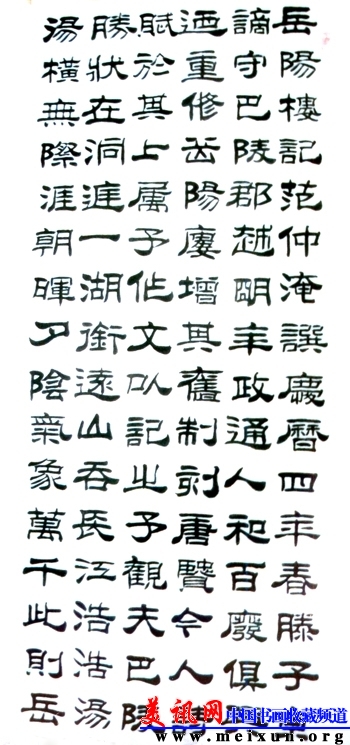 岳陽樓記范仲淹譔慶曆四年春滕子
謫守巴陵郡越明年政通人和百廢俱
迺重修岳陽廔增其舊制刻唐賢今人
賦於其上屬予作文以記之予觀夫巴陵
勝狀在洞庭一湖銜遠山吞長江浩浩湯
湯橫無際涯朝暉夕陰氣象萬千此則岳
美讯网 中国书画收藏频道
www.meixun.org